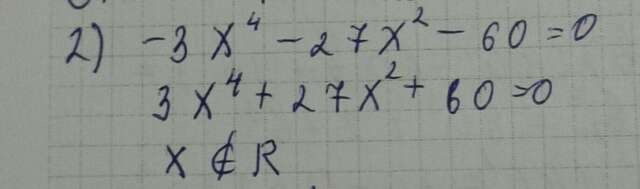 2) -3x⁴ - 27x² - 60 = 0
3x⁴ + 27x² + 60 = 0
x ∉ R